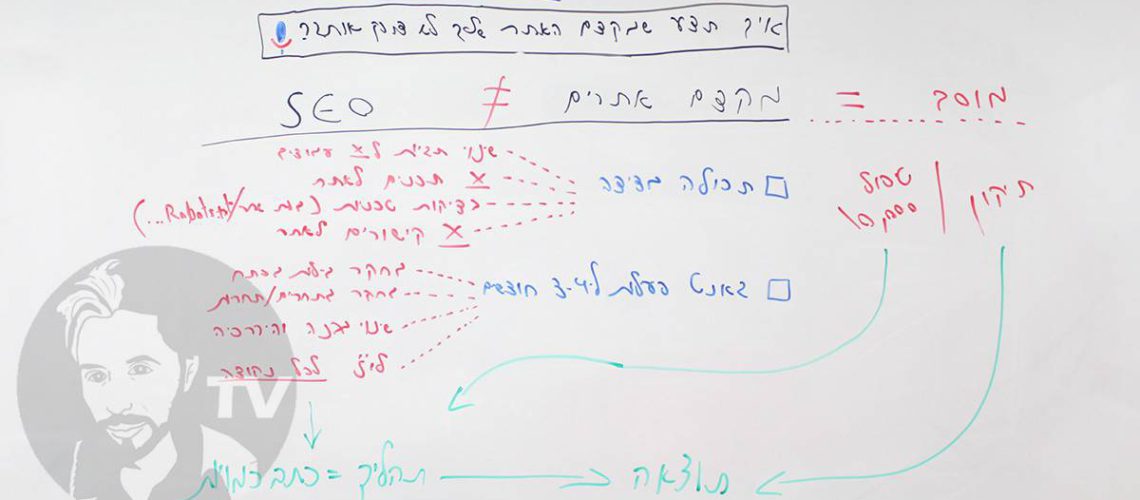 איך תדע שמקדם האתר שלך לא דופק אותך?
מוסך = מקדם אתרים ≠ SEO
תיקון | טיפול 10,000
תכולה מדידה
שינוי תגיות ל X עמודים
X תכנים לאתר
בדיקות טכניות (מפת אתר/Robots.txt...)
X קישורים לאתר
גאנט פעולות ל 3-4 חודשים
מחקר מילות מפתח
מחקר מתחרים/תחרות
שינוי מבנה והיררכיה
לו"ז לכל נקודה
תהליך = כתב כמויות
תוצאה
TV